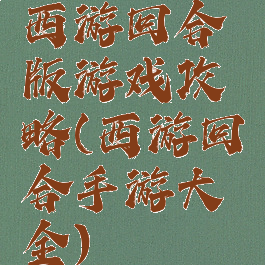 西游回合
版游戏攻
略(西游回
合手游大
全)